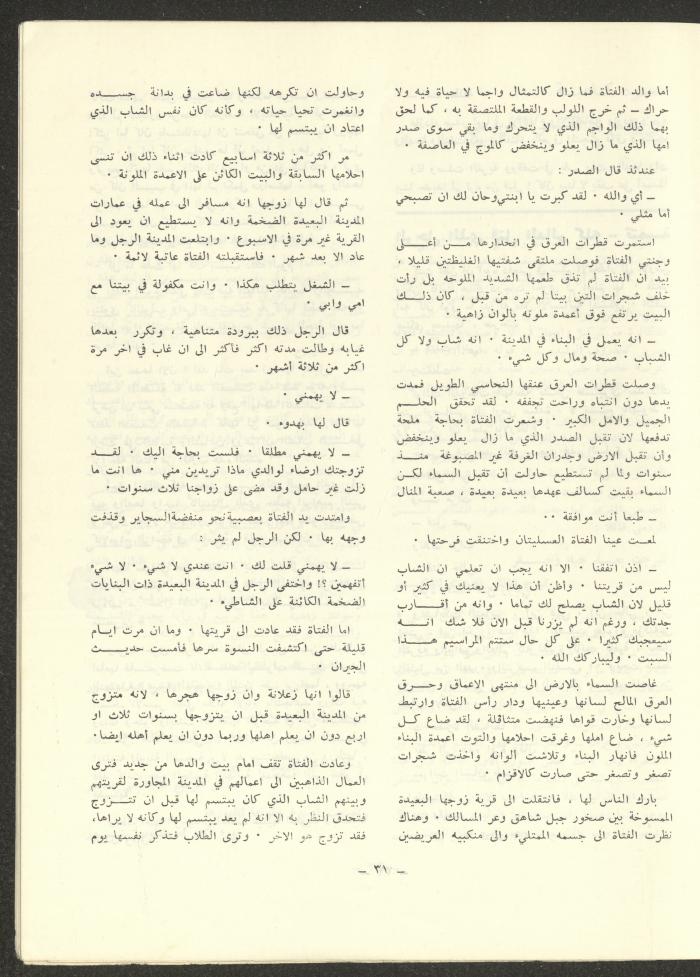 أما والد الفتاة فما زال كالتمثال واجما لا حياة فيه ولا
حراك – ثم خرج اللولب والقطعة الملتصقة به ، كما لحق
بهما ذلك الواجم الذي لا يتحرك وما بقي سوى صدر
امها الذي ما زال يعلو وينخفض كالموج في العاصفة ٠
عندئذ قال الصدر :
– أي والله ٠ لقد كبرت يا ابنتي وحان لك ان تصبحي
أما مثلي ٠
استمرت قطرات العرق في انحدارها مــن أعــلى
وجنتي الفتاة فوصلت ملتقى شفتيها الغليظتين قليلا ،
بيد ان الفتاة لم تذق طعمها الشديد الملوحه بل رأت
خلف شجرات التين بيتا لم تره من قبل ، كان ذلــك
البيت يرتفع فوق أعمدة ملونه بألوان زاهية ٠
– انه يعمل في البناء في المدينة ٠ انه شاب ولا كل
الشباب ٠ صحة ومال وكل شيء ٠
وصلت قطرات العرق عنقها النحاسي الطويل فمدت
يدها دون انتباه وراحت تجففه ٠ لقد تحقق الحلــم
الجميل والامل الكبير ٠ وشعرت الفتاة بحاجة ملحة
تدفعها لان تقبل الصدر الذي ما زال يعلو وينخفض
وأن تقبل الارض وجدران الغرفة غير المصبوغة منــذ
سنوات ولما لم تستطيع حاولت أن تقبل السماء لكــن
السماء بقيت كسالف عهدها بعيدة بعيدة ، صعبة المنال
– طبعا أنت موافقة ٠٠
لمعــت عينا الفتاة العسليتان واختنقت فرحتها ٠
– اذن اتفقنا ٠ الا انه يجب ان تعلمي ان الشاب
ليس من قريتنا ٠ وأظن أن هذا لا يعنيك في كثير أو
قليل لان الشاب يصلح لك تماما ٠ وانه من أقــارب
جدتك ، ورغم انه لم يزرنا قبل الان فلا شك انــه
سيعجبك كثيرا ٠ على كل حال ستتم المراسيم هــذا
السبت ٠ وليباركك الله ٠
غاصت السماء بالارض الى منتهى الاعماق وحــرق
العرق المالح لسانها وعينيها ودار رأس الفتاة وارتبط
لسانها وخارت قواها فنهضت متثاقلة ، لقد ضاع كــل
شيء ، ضاع املها وغرقت احلامها والتوت اعمدة البناء
الملون فانهار البناء وتلاشت ألوانه واخذت شجرات
تصغر وتصغر حتى صارت كالاقزام ٠
بارك الناس لها ، فانتقلت الى قرية زوجها البعيدة
الممسوخة بين صخور جبل شاهق وعر المسالك ٠ وهناك
نظرت الفتاة الى جسمه الممتلىء والى منكبيه العريضين
وحاولت ان تكرهه لكنها ضاعت في بدانة جســده
وانغمرت تحيا حياته ، وكأنه كان نفس الشاب الذي
اعتاد ان يبتسم لها ٠
مر اكثر من ثلاثة اسابيع كادت اثناء ذلك ان تنسى
احلامها السابقة والبيت الكائن على الاعمدة الملونة ٠
ثم قال لها زوجها انه مسافر الى عمله في عمارات
المدينة البعيدة الضخمة وانه لا يستطيع ان يعود الى
القرية غير مرة في الاسبوع ٠ وابتلعت المدينة الرجل وما
عاد الا بعد شهر ٠ فاستقبلته الفتاة عاتبة لائمة ٠
– الشغل يتطلب هكذا ٠ وانت مكفولة في بيتنا مع
امي وابي ٠
قال الرجل ذلك ببرودة متناهية ، وتكرر بعدها
غيابه وطالت مدته اكثر فأكثر الى ان غاب في اخر مرة
اكثر من ثلاثة أشهر ٠
– لا يهمني ٠
قال لها بهدوء ٠
– لا يهمني مطلقا ٠ فلست بحاجة اليك ٠ لقــد
تزوجتك ارضاء لوالدي ماذا تريدين مني ٠ ها انت ما
زلت غير حامل وقد مضى على زواجنا ثلاث سنوات ٠
وامتدت يد الفتاة بعصبية نحو منفضة السجاير وقذفت
وجهه بها ٠ لكن الرجل لم يثر :
– لا يهمني قلت لك ٠ انت عندي لا شيء ٠ لا شيء
أتفهمين ؟! واختفى الرجل في المدينة البعيدة ذات البنايات
الضخمة الكائنة على الشاطيء ٠
اما الفتاة فقد عادت الى قريتها ٠ وما ان مرت ايــام
قليلة حتى اكتشفت النسوة سرها فأمست حديــث
الجيران ٠
قالوا انها زعلانة وان زوجها هجرها ، لانه متزوج
من المدينة البعيدة قبل ان يتزوجها بسنوات ثلاث او
اربع دون ان يعلم اهلها وربما دون ان يعلم أهله ايضا٠
وعادت الفتاة تقف امام بيت والدها من جديد فترى
العمال الذاهبين الى اعمالهم في المدينة المجاورة لقريتهم
وبينهم الشاب الذي كان يبتسم لها قبل ان تتــزوج
فتحدق النظر به الا انه لم يعد يبتسم لها وكأنه لا يراها،
فقد تزوج هو الاخر ٠ وترى الطلاب فتذكر نفسها يوم
– ٣١ –